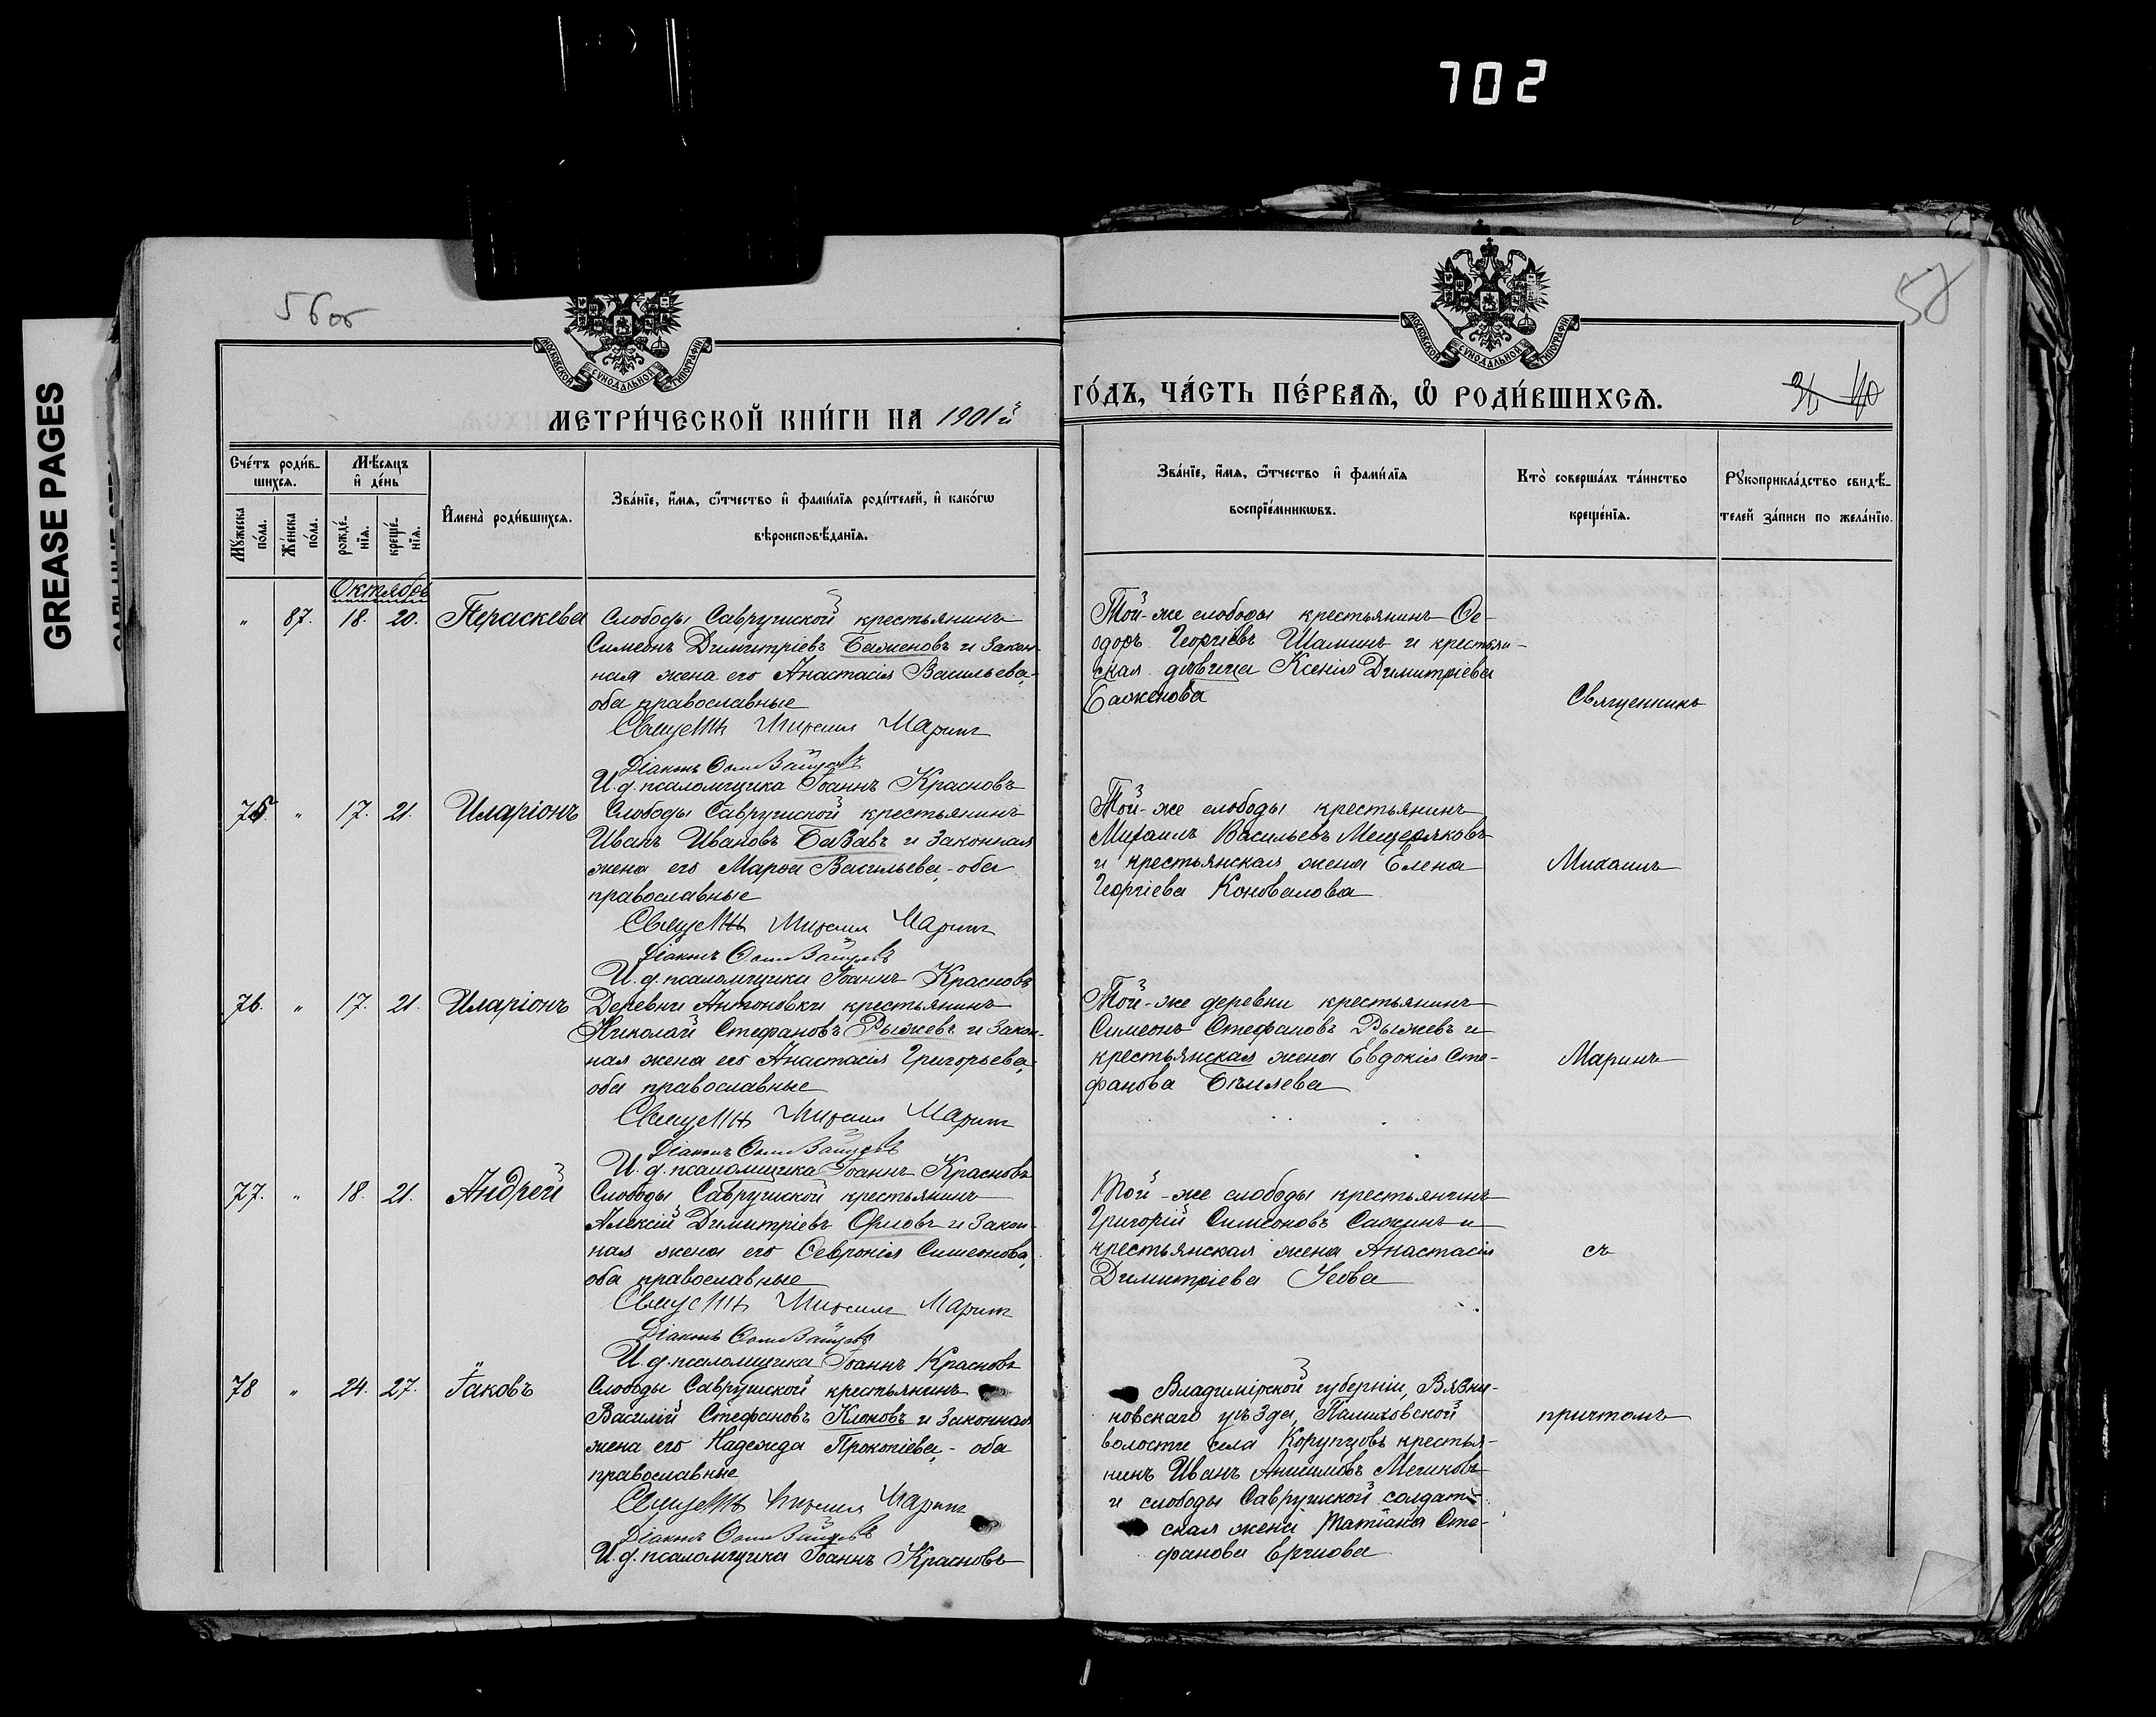 702
GREASE PAGES
56 об
57
МОСКОВСКОЙ СѴНОДАЛЬНОЙ ТИПОГРАФІИ
МОСКОВСКОЙ СѴНОДАЛЬНОЙ ТИПОГРАФІИ
МЕТРИ́ЧЕСКОЙ КНИ́ГИ НА 1901й
ГО́ДЪ, ЧА́СТЬ ПЕ́РВАѦ, Ѽ РОДИ́ВШИХСѦ.
Сче́тъ роди́в-
шихсѧ.
Мꙋжеска по́ла.
Же́нска по́ла.
Мѣ́сѧцъ
и҆ де́нь
рожде́-
нїѧ.
креще́-
нїѧ.
И҆мена̀ роди́вшихсѧ.
Зва́нїе, и҆́мѧ, ѻ҆́тчество и҆ фами́лїѧ роди́телей, и҆ како́гѡ
вѣроисповѣ́данїѧ.
Зва́нїе, и҆́мѧ, ѻ҆́тчество и҆ фами́лїѧ
воспрїе́мникѡвъ.
Кто̀ соверша́лъ та́инство
креще́нїѧ.
Рꙋкоприкла́дство свидѣ́-
телей за́писи по жела́нїю.
Октябрь
" 87. 18. 20. Параскева
Слободы Савушской крестьянинъ
Симеонъ Димитріевъ Баженовъ и закон-
ная жена его Анастасія Васильева,
оба православные
Священ Михаилъ Маринъ
Діаконъ
И. д. псаломщика Іоаннъ Красновъ
Той-же слободы крестьянинъ Ѳе-
одоръ Георгіевъ Шаминъ и крестьян-
ская дѣвица Ксенія Димитріева
Баженова
Священникъ
75. " 17. 21. Иларіонъ
Слободы Саврушской крестьянинъ
Иванъ Ивановъ и законная
жена его Марѳа Васильева,- оба
православные
Священ Михаилъ Маринъ
Діаконъ
И. д. псаломщика Іоаннъ Красновъ
Той-же слободы крестьянинъ
Михаилъ Васильевъ Мещеряковъ
и крестьянская жена Елена
Георгіева Коновалова
Михаилъ
76. " 17. 21. Иларіонъ
Деревни Антоновки крестьянинъ
Николай Стефановъ Рыжевъ и закон-
ная жена его Анастасія Григорьева,
оба православные
Священ Михаилъ Маринъ
Діаконъ
И. д. псаломщика Іоаннъ Красновъ
Той-же деревни крестьянинъ
Симеонъ Стефановъ Рыжевъ и
крестьянская жена Евдокія Сте-
фанова
Маринъ
77. " 18. 21. Андрей
Слободы Саврушской крестьянинъ
Алексій Димитріевъ Орловъ и закон-
ная жена его Ѳевронія Симеонова,
оба православные
Священ Михаилъ Маринъ
Діаконъ
И. д. псаломщика Іоаннъ Красновъ
Той-же слободы крестьянинъ
Григорій Симеоновъ Сажинъ и
крестьянская жена Анастасія
Димитріева
съ
78 " 24. 27. Іаковъ
Слободы Саврушской крестьянинъ
Василій Стефановъ Клоковъ и законная
жена его Надежда Прокопіева,- оба
православные
Священ Михаилъ Маринъ
Діаконъ
И. д. псаломщика Іоаннъ Красновъ
Владимірской губерніи, Вязни-
ковскаго уѣзда, Палиховской
волости села крестья-
нинъ Иванъ Анисимовъ
и слободы Саврушской солдат-
ская жена Татіана Сте-
фанова
причтомъ